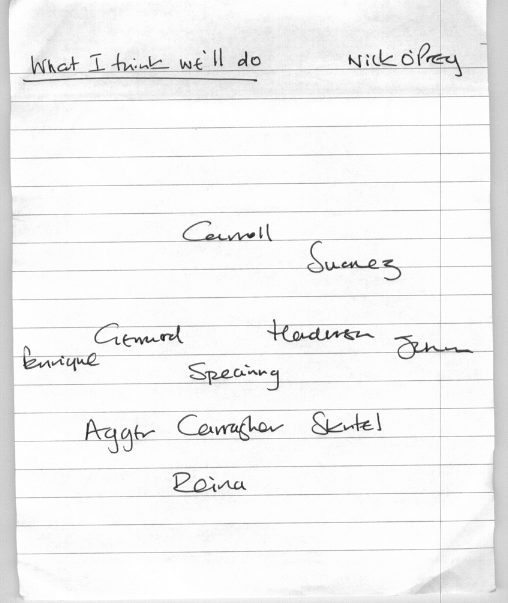 What I think we'll do Nick O'Prey
Carroll
Suarez
Gerrard Henderson Jenn
Enrique
Spearing
Agger Carragher Skrtel
Reina